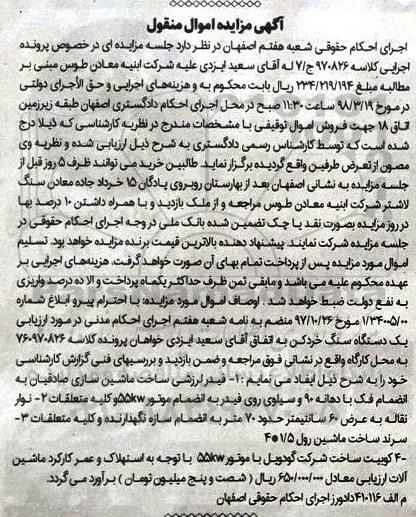 آگهی مزایده اموال منقول
اجرای احکام حقوقی شعبه هفتم اصفهان در نظر دارد جلسه مزایده ای در خصوص پرونده
اجرایی کلاسه ۹۷۰۸۲۶ ج/۷ له آقای سعید ایزدی علیه شرکت ابنیه معادن طوس مبنی بر
مطالبه مبلغ ۲۳۴/۲۱۹/۱۹۴ ریال بابت محکوم به و هزینه‌های اجرایی و حق الأجرای دولتی
در مورخ ۹۸/۳/۱۹ ساعت ۱۱:۳۰ صبح در محل اجرای احکام دادگستری اصفهان طبقه زیرزمین
اتاق ۱۸ جهت فروش اموال توقیفی با مشخصات مندرج در نظریه کارشناسی که ذیلا درج
شده است که توسط کارشناس رسمی دادگستری به شرح ذیل ارزیابی شده و نظریه وی
مصون از تعرض طرفین واقع گردیده برگزار نماید. طالبین خرید می توانند ظرف ۵ روز قبل از
جلسه مزایده به نشانی اصفهان بعد از بهارستان روبروی پادگان ۱۵ خرداد جاده معادن سنگ
لاشتر شرکت ابنیه معادن طوس مراجعه و از ملک بازدید و با همراه داشتن ۱۰ درصد بها
در روز مزایده بصورت نقد یا چک تضمین شده بانک ملی در وجه اجرای احکام حقوقی در
جلسه مزایده شرکت نمایند. پیشنهاد دهنده بالاترین قیمت برنده مزایده خواهد بود. تسلیم
اموال مورد مزایده پس از پرداخت تمام بهای آن صورت خواهد گرفت. هزینه‌های اجرایی بر
عهده محکوم علیه می باشد و مابقی ثمن ظرف حداکثر یکماه پرداخت و الا ده درصد واریزی
به نفع دولت ضبط خواهد شد . اوصاف اموال مورد مزایده: با احترام پیرو ابلاغ شماره
۱/۳۴۰۰۵/۰۰ مورخ ۹۷/۱۰/۲۶ منضم به نامه شعبه هفتم اجرای احکام مدنی در مورد ارزیابی
یک دستگاه سنگ خردکن به اتفاق آقای سعید ایزدی خواهان پرونده کلاسه ۷۶۰۹۷۰۸۲۶
به محل کارگاه واقع در نشانی فوق مراجعه و ضمن بازدید و بررسیهای فنی گزارش کارشناسی
خود را به شرح ذیل ایفاد می نمایم :۱- فیدر لرزشی ساخت ماشین سازی صادقیان به
انضمام فک با دهانه ۹۰ و سیلوی روی فیدر به انضمام موتور ۵۵kw و کلیه متعلقات ۲- نوار
نقاله به عرض ۶۰ سانتیمتر حدود ۷۰ متر به انضمام سازه نگهدارنده و کلیه متعلقات ۳-
سرند ساخت ماشین رول ۱/۵*۴
۴- کوبیت ساخت شرکت گودویل با موتور ۵۵kw با توجه به استهلاک و عمر کارکرد ماشین
آلات ارزیابی معادل ۶۵۰/۰۰۰/۰۰۰ ریال ( شصت و پنج میلیون تومان ) برآورد می گردد.
م الف ۴۱۰۱۱۶ دادورز اجرای احکام حقوقی اصفهان